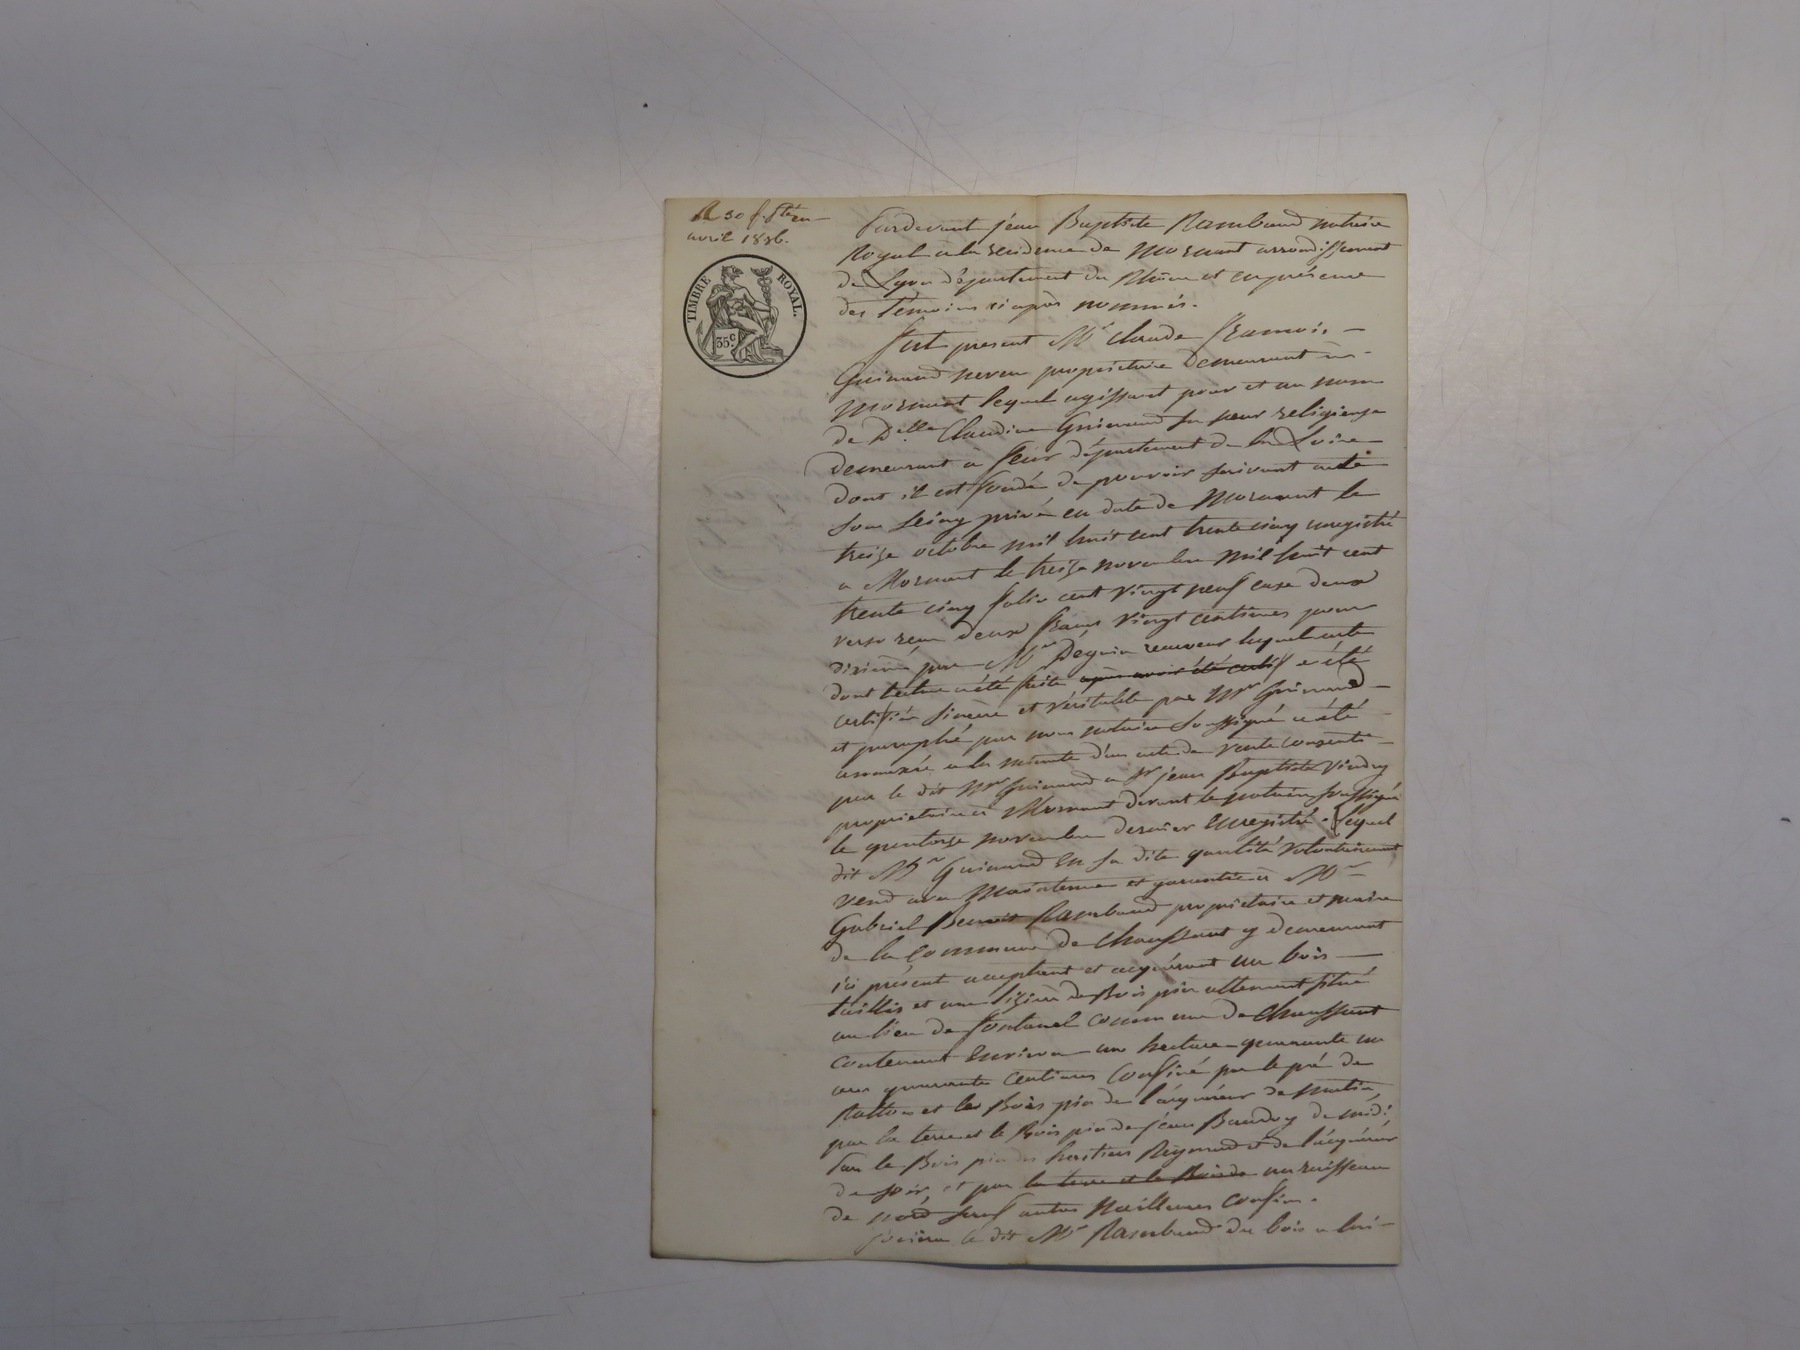 avril 1836.
TIMBRE ROYAL.
35c.
Pardevant jean Baptiste Rambaud notaire
Royal à la residence de Mornant arrondissement
de Lyon département du Rhône et en présence
des témoins ci après nommés.
Fut present Mr Claude François
Guinand neveu propriétaire demeurant à
Mornant lequel agissant pour et au nom
de Delle Claudine Guinand sa sœur religieuse
demeurant à Feur département de la Loire
dont il est fondé de pouvoir suivant acte
sous seing privé en date de Mornant le
treize octobre mil huit cent trente cinq enregistré
a Mornant le treize novembre mil huit cent
trente cinq folio cent vingt neuf case deux
verso reçu deux francs vingt centimes pour
dixième par Mr Deguin receveur lequel acte
dont lecture a été faite après avoir été certif a été
certifié sincère et véritable par Mr Guinand
et paraphé par nous notaire soussigné a été
annexée a la minute d'un acte de vente consenti
par le dit Mr Guinand a Sr jean Baptiste Vindry
propriétaire à Mornant devant le notaire soussigné
le quatorze novembre dernier Enregistré. Lequel
dit Mr Guinand en sa dite qualité volontairement
vend avec Maintenue et garantie à Mr
Gabriel Benoit Rambaud propriétaire et maire
de la Commune de Chaussant y demeurant
ici présent acceptant et acquérant un bois
taillis et une lizière de Bois pin attenant situé
au lieu de Fontanel Commune de Chaussant
contenant Environ un hectare quarante un
ares quarante Centiares Confiné par le pré de
et le Bois pin de l'acquéreur de matin,
par la terre et le Bois pin de jean Baudry de midi;
Par le Bois pin des heritiers Reymond et de l'acquéreur
de soir, et par la terre et le Bois de un ruisseau
de nord sauf autres meilleures Confins.
jouira le dit Mr Rambaud du bois a lui